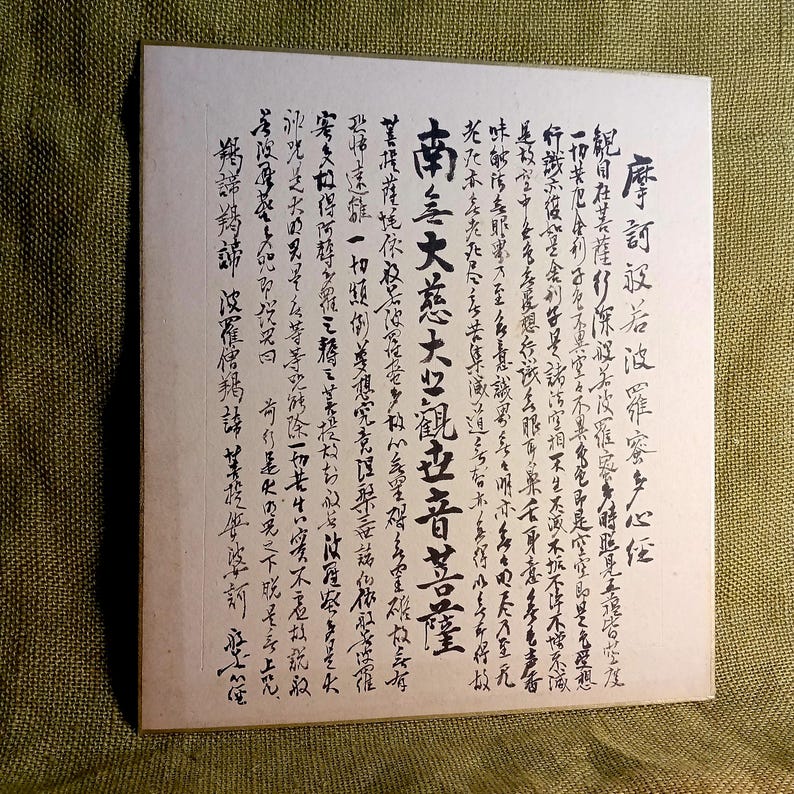 摩訶般若波羅蜜多心経
観自在菩薩行深般若波羅蜜多時照見五蘊皆空度
一切苦厄舎利子色不異空々不異色色即是空空即是色受想
行識亦復如是舎利子是諸法空相不生不滅不垢不浄不増不減
是故空中無色無受想行識無眼耳鼻舌身意無色声香
味触法無眼界乃至無意識界無々明亦無々明尽乃至无
老死亦無老死尽無苦集滅道無智亦無得以無所得故
南無大慈大悲観世音菩薩
菩提薩埵依般若波羅蜜多故心無罣礙無罣礙故無有
恐怖遠離一切顛倒夢想究竟涅槃三世諸仏依般若波羅
蜜多故得阿耨多羅三藐三菩提故知般若波羅蜜多是大
神咒是大明咒是無上咒是無等等咒能除一切苦真実不虚故説般
若波羅蜜多咒即説咒曰 前行是大明咒之下脱是無上咒、
羯諦羯諦 波羅僧羯諦 菩提娑婆訶 般若心経